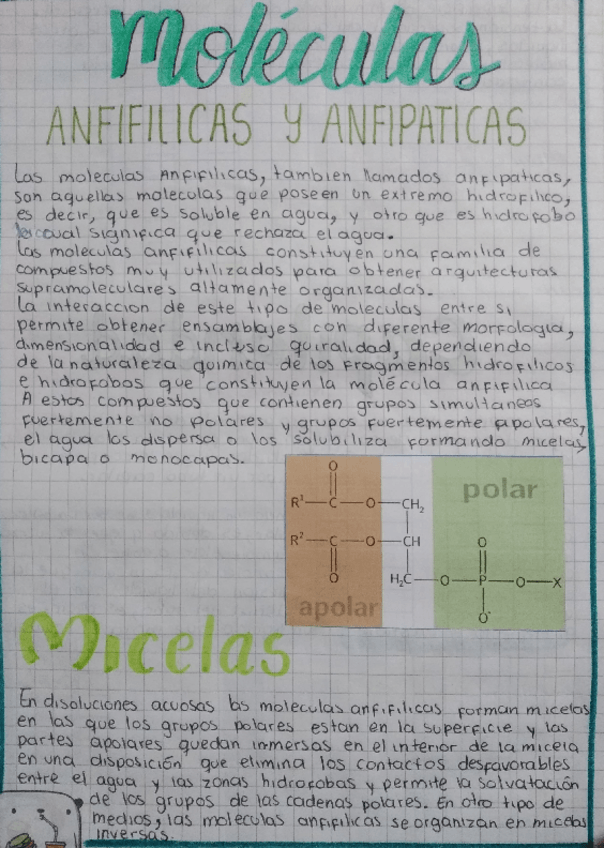 moléculas
ANFIFILICAS Y ANFIPATICAS
Las moleculas Anfifilicas, tambien llamados anfipaticas,
son aquellas moleculas que poseen un extremo hidrofilico,
es decir, que es soluble en agua, y otro que es hidrofobo
lo cual significa que rechaza el agua.
Las moleculas anfifilicas constituyen una familia de
compuestos muy utilizados para obtener arquitecturas
supramoleculares altamente organizadas.
La interaccion de este tipo de moleculas entre si,
permite obtener ensamblajes con diferente morfologia,
dimensionalidad e incluso quiralidad, dependiendo
de la naturaleza quimica de los fragmentos hidrofilicos
e hidrofobos que constituyen la molécula anfifilica
A estos compuestos que contienen grupos simultaneos
fuertemente no polares y grupos fuertemente apolares,
el agua los dispersa o los solubiliza formando micelas,
bicapa o monocapas.
O
polar
R¹—C—O—CH₂
R²—C—O—CH
O
O
H₂C—O—P—O—X
apolar
O⁻
Micelas
En disoluciones acuosas las moleculas anfifilicas forman micelas
en las que los grupos polares estan en la superficie y las
partes apolares quedan inmersas en el interior de la micela
en una disposición que elimina los contactos desfavorables
entre el agua y las zonas hidrofobas y permite la solvatación
de los grupos de las cadenas polares. En otro tipo de
medios, las moleculas anfifilicas se organizan en micelas
inversas.